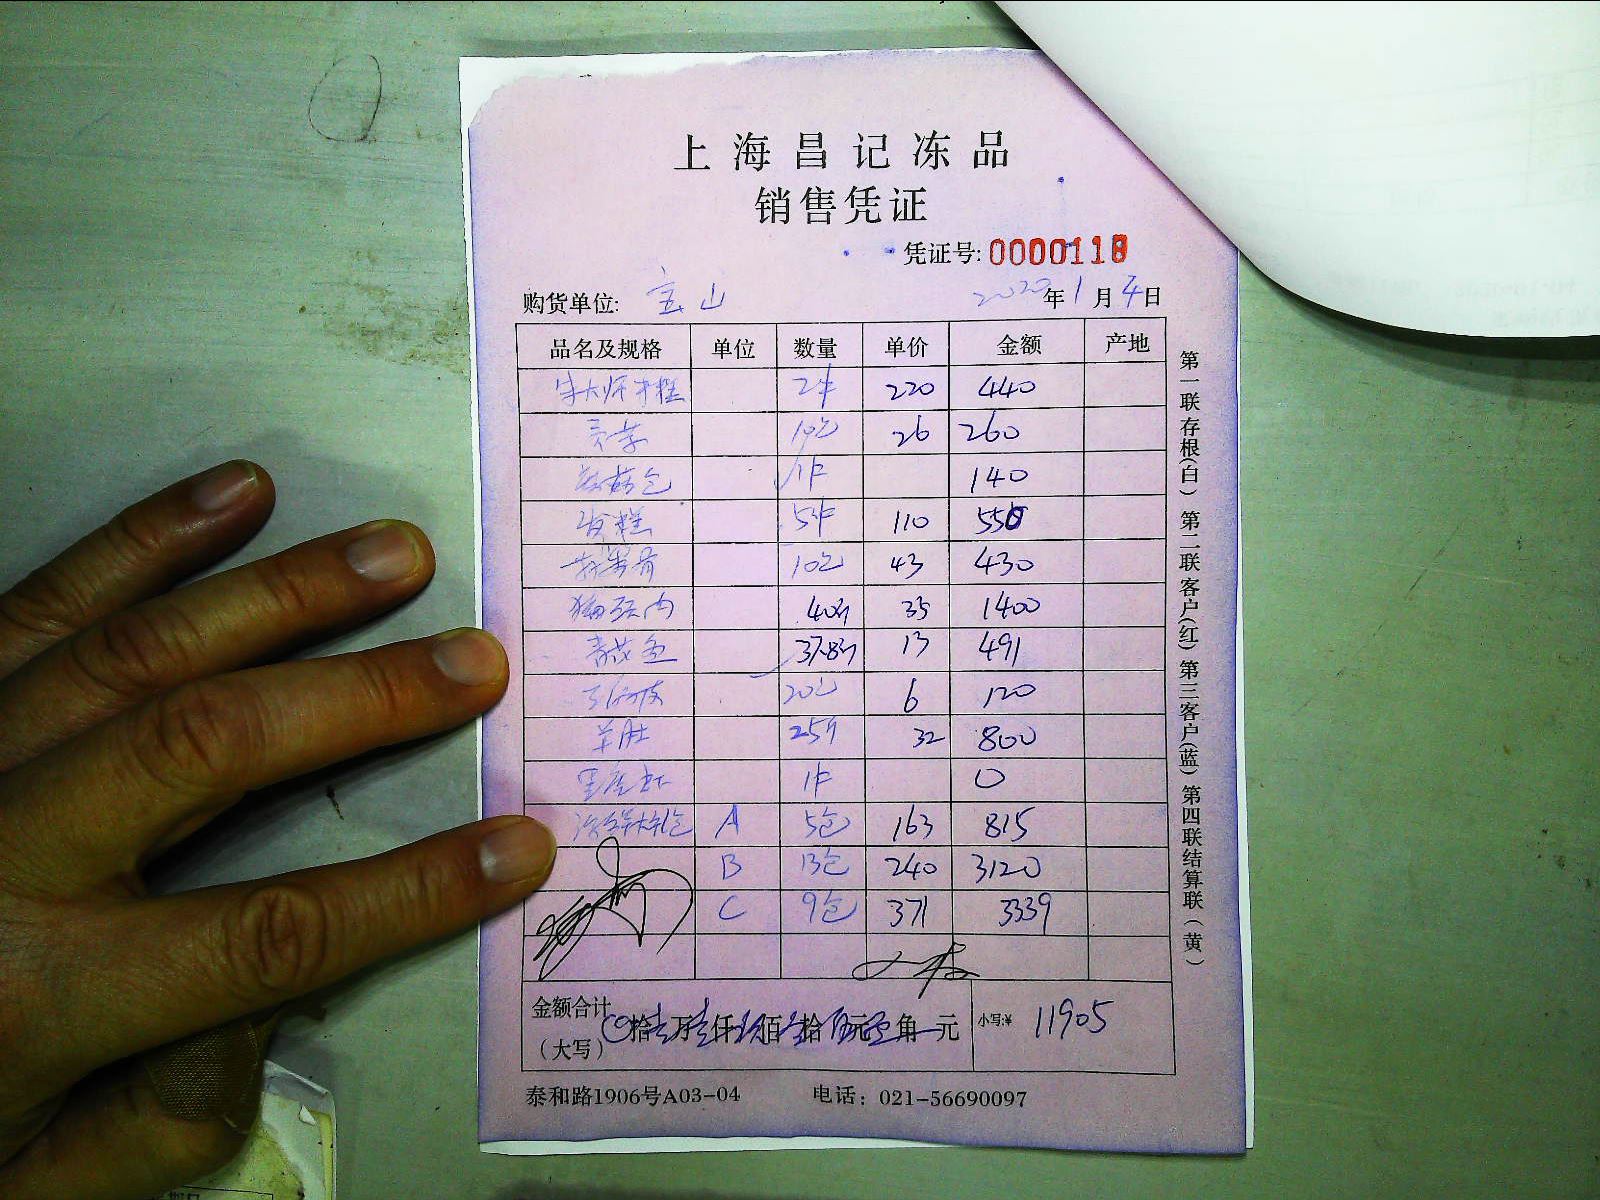 上海昌记冻品
销售凭证
凭证号: 0000118
购货单位: 宝山 2020年1月4日
品名及规格 单位 数量 单价 金额 产地
2件 220 440
10包 26 260
香菇包 1件 140
发糕 5件 110 550
10包 43 430
猪颈肉 40斤 35 1400
青花鱼 37.8斤 13 491
20包 6 120
羊肚 25斤 32 800
1件 0
冷鲜大礼包 A 5包 163 815
B 13包 240 3120
C 9包 371 3339
金额合计
(大写) 拾壹万壹仟玖佰零拾伍元零角 元 小写:¥ 11905
泰和路1906号A03-04 电话: 021-56690097
第一联存根(白) 第二联客户(红) 第三客户(蓝) 第四联结算联(黄)